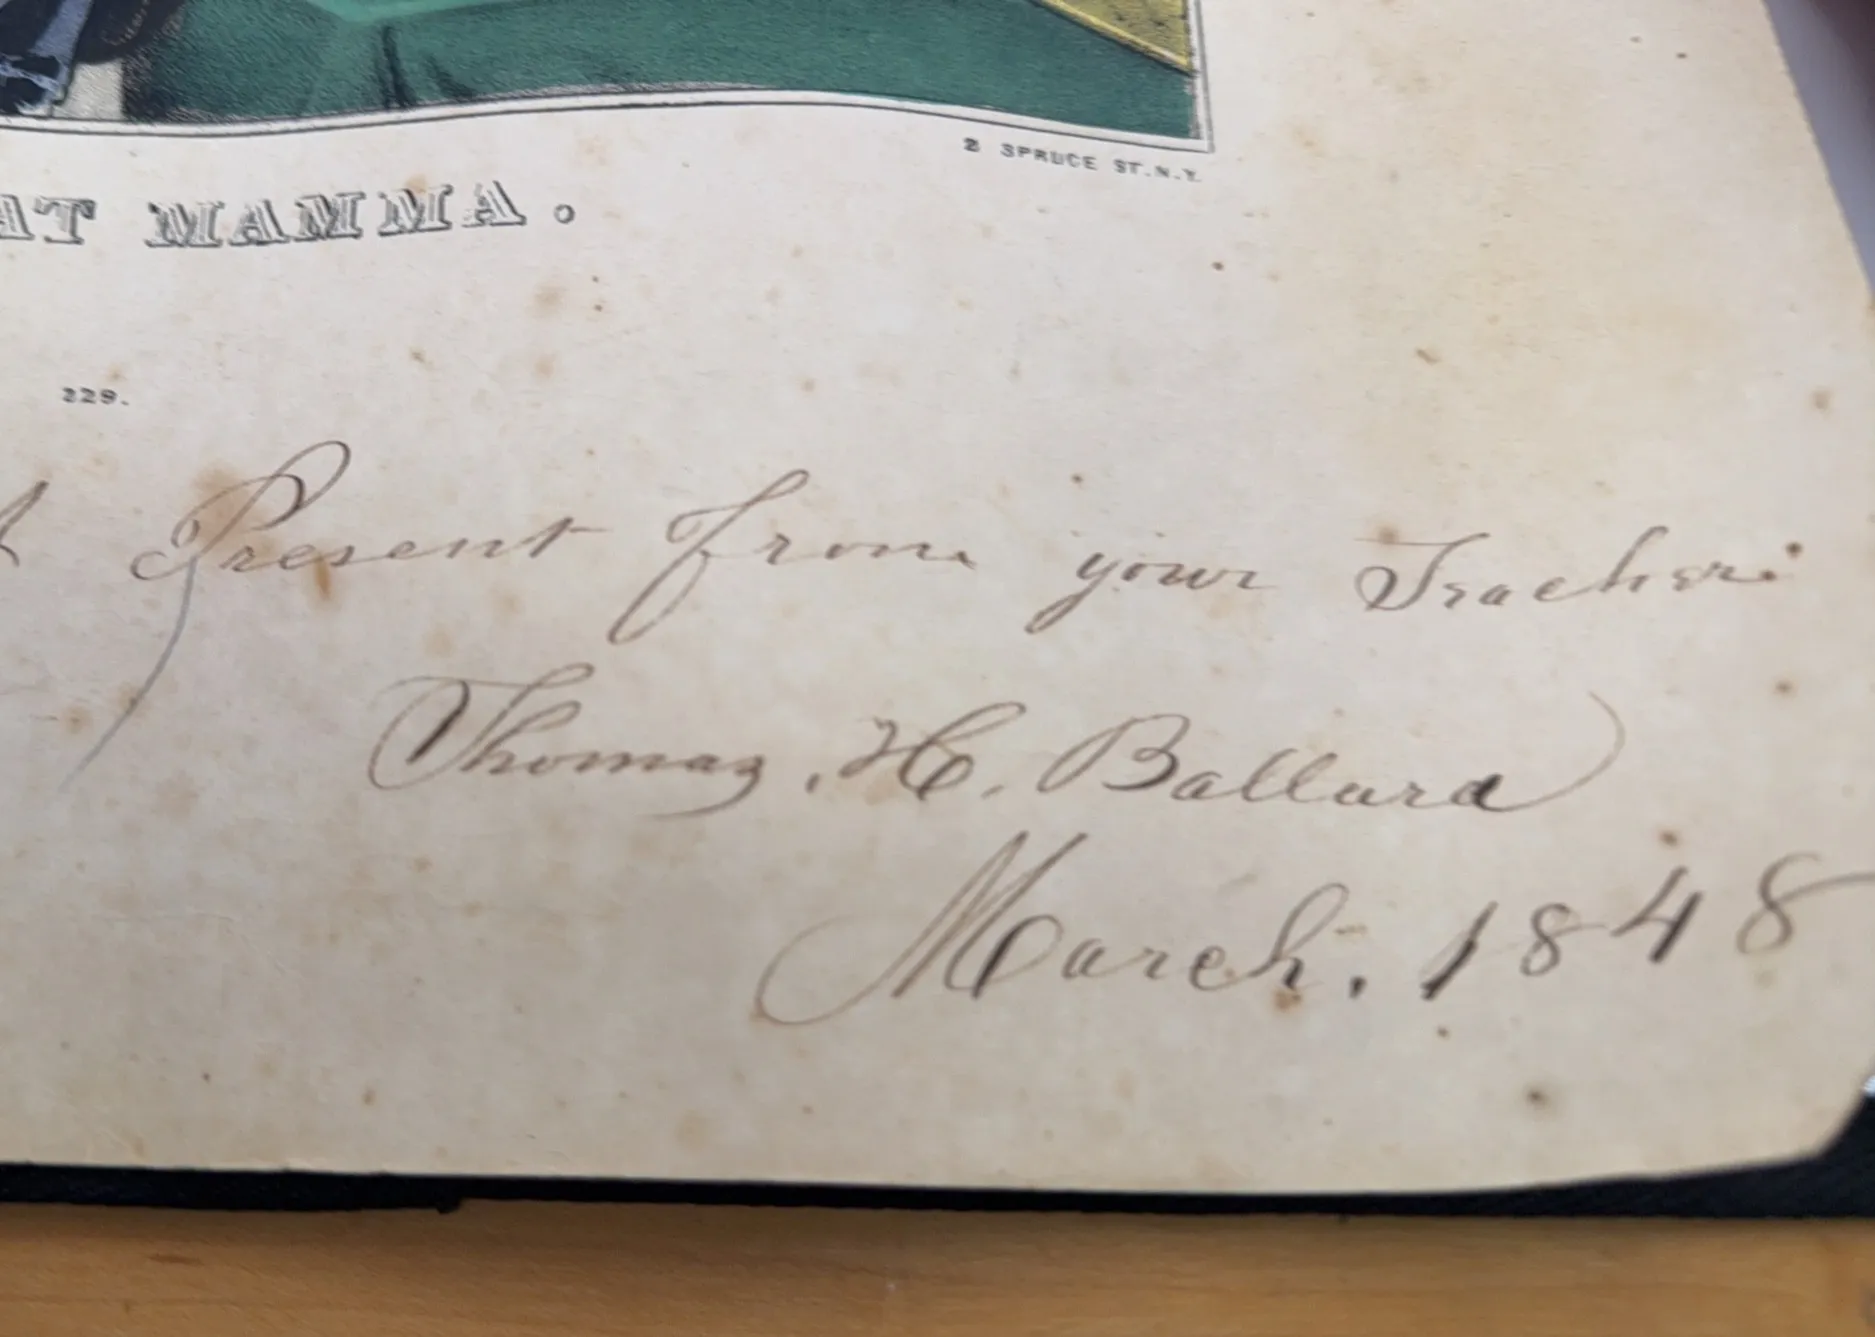 2 SPRUCE ST. N.Y.
AT MAMMA.
229.
A Present from your Teacher:
Thomas. H. Ballard
March. 1848